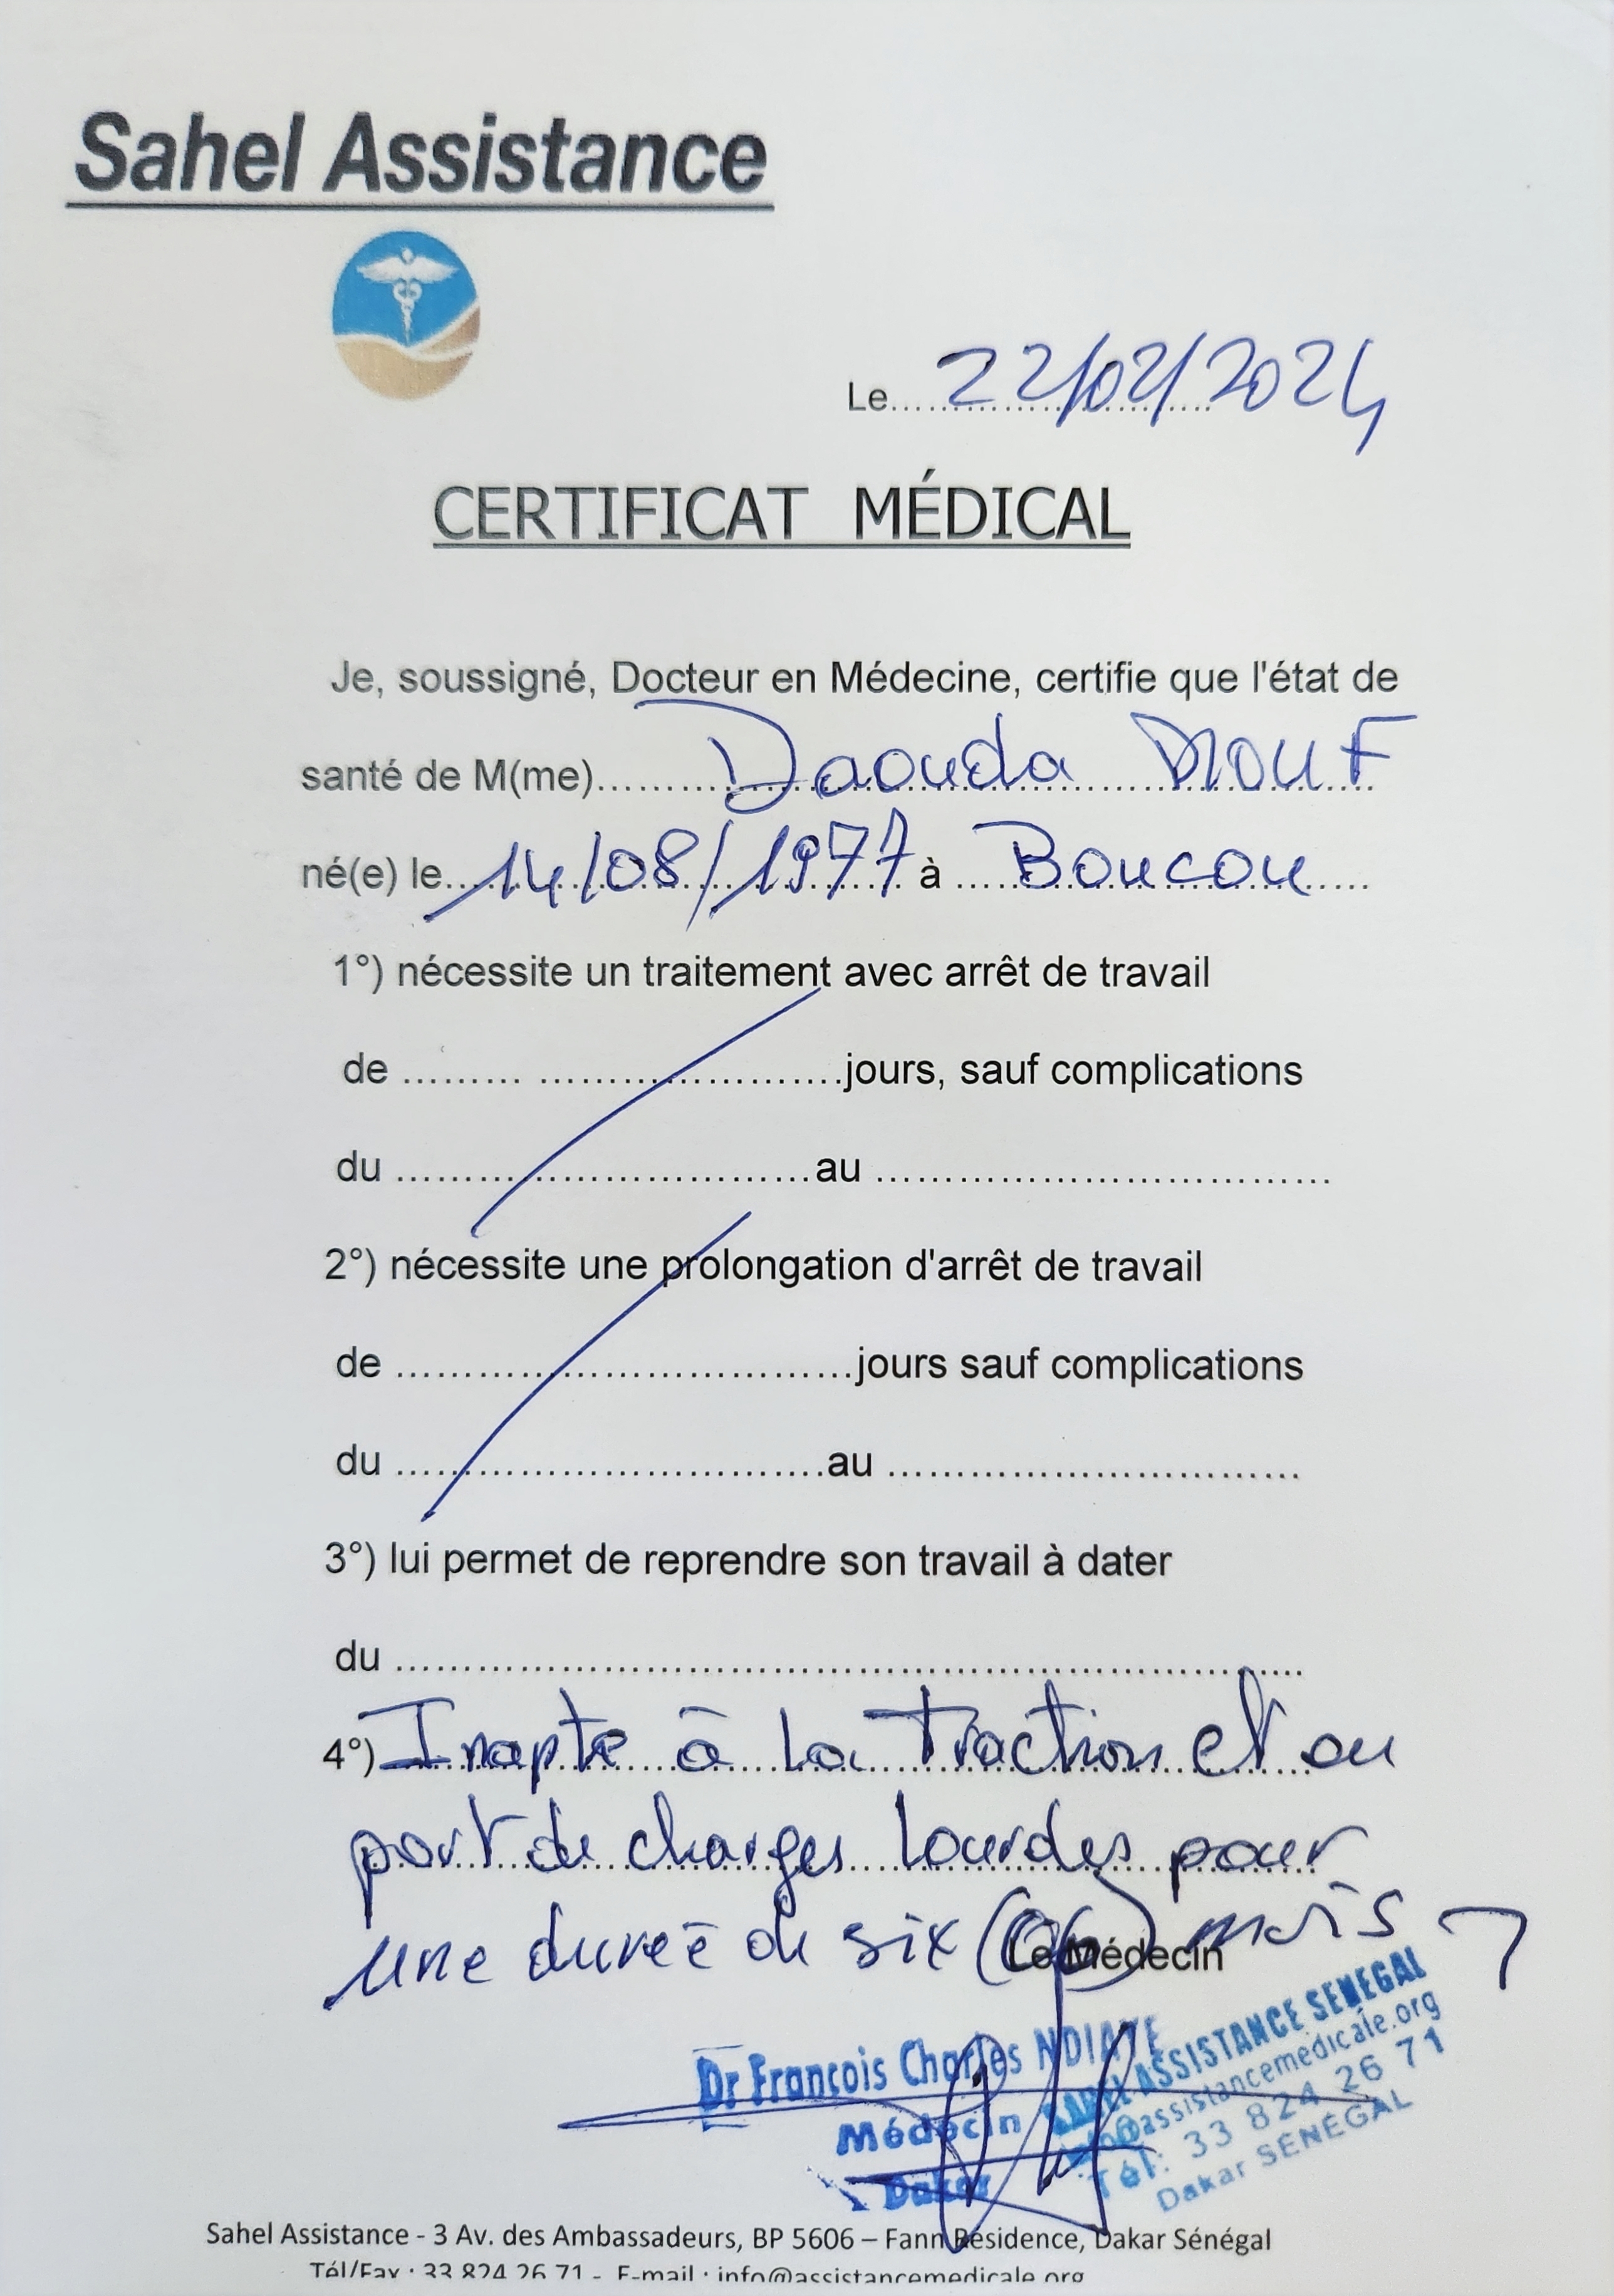 Sahel Assistance
Le 22/02/2024
CERTIFICAT MÉDICAL
Je, soussigné, Docteur en Médecine, certifie que l'état de
santé de M(me)........ Daouda DIOUF
né(e) le.. 14/08/1977 à .... Boucou
1°) nécessite un traitement avec arrêt de travail
de ......... ......................jours, sauf complications
du ...................................au .......................................
2°) nécessite une prolongation d'arrêt de travail
de .......................................jours sauf complications
du .....................................au ...................................
3°) lui permet de reprendre son travail à dater
du ..............................................................................
4°) Inapte à la Traction et au
port de charges lourdes pour
une durée de six (06) mois
Le Médecin
Dr François Charles NDIAYE
Médecin
Dakar
SAHEL ASSISTANCE SENEGAL
info@assistancemedicale.org
Tél: 33 824 26 71
Dakar SENEGAL
Sahel Assistance - 3 Av. des Ambassadeurs, BP 5606 – Fann Résidence, Dakar Sénégal
Tél/Fax : 33 824 26 71 - E-mail : info@assistancemedicale.org